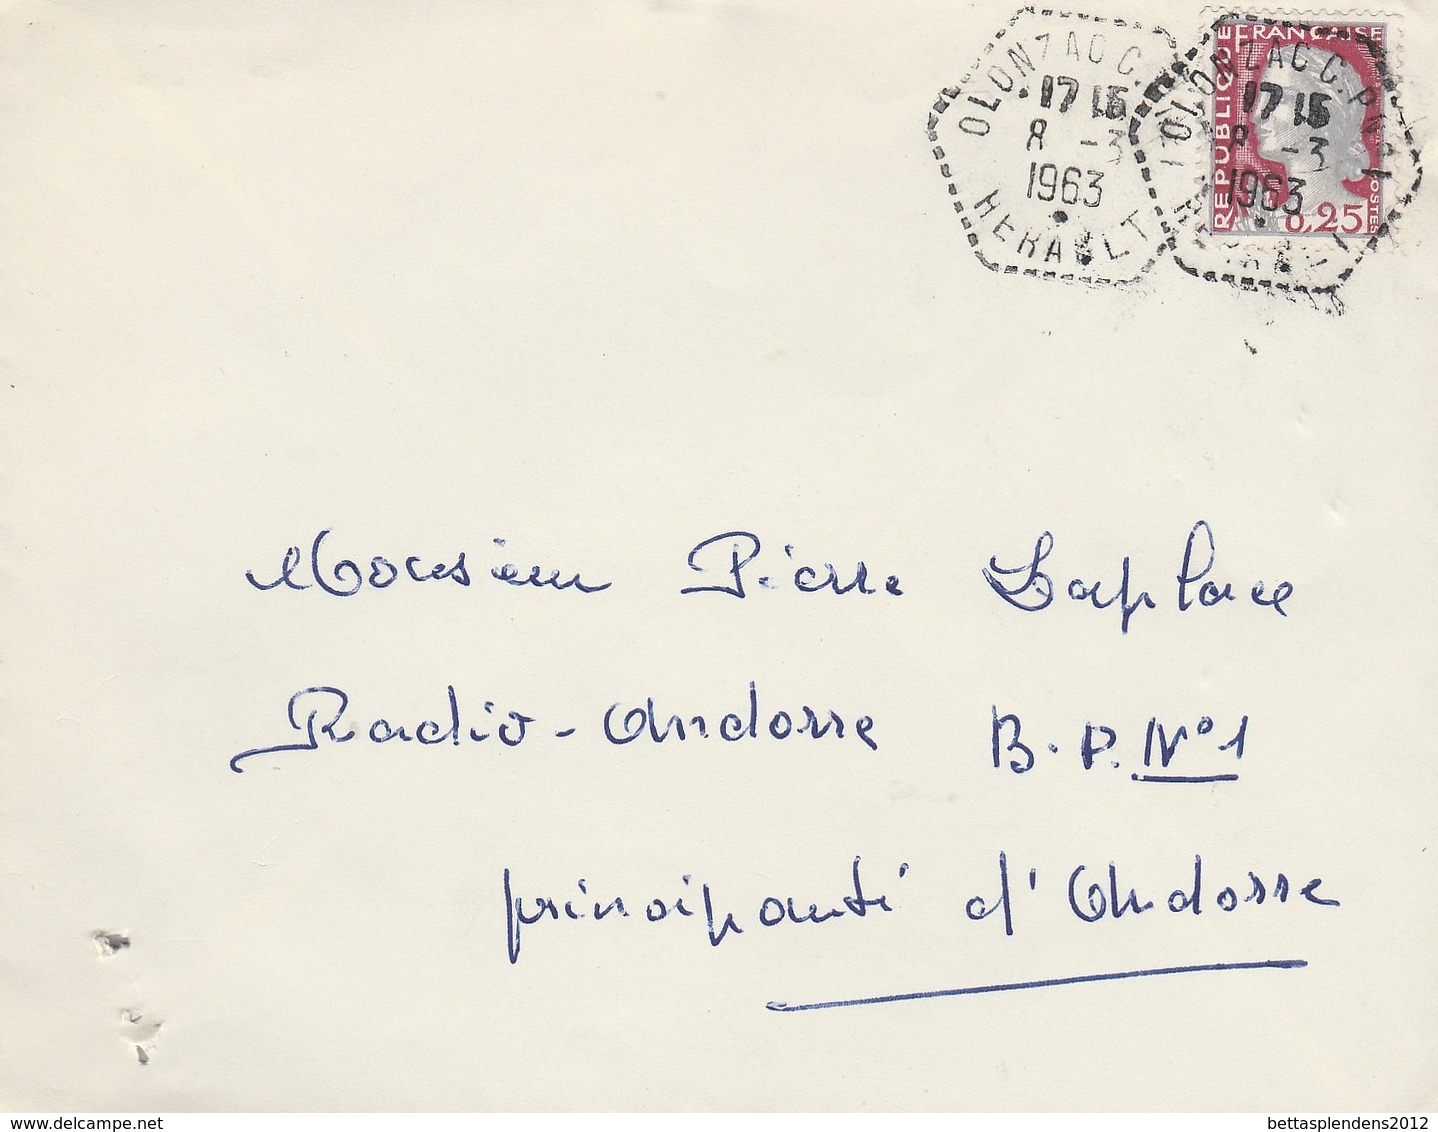 OLONZAC C.P. N°1
17 15
8 -3
1963
HERAULT
OLONZAC C.P. N°1
17 15
8 -3
1963
HERAULT
REPUBLIQUE FRANÇAISE
0,25
POSTES
Monsieur Pierre Laplace
Radio-Andorre B.P. N°1
principauté d'Andorre
www.delcampe.net
bettasplendens2012